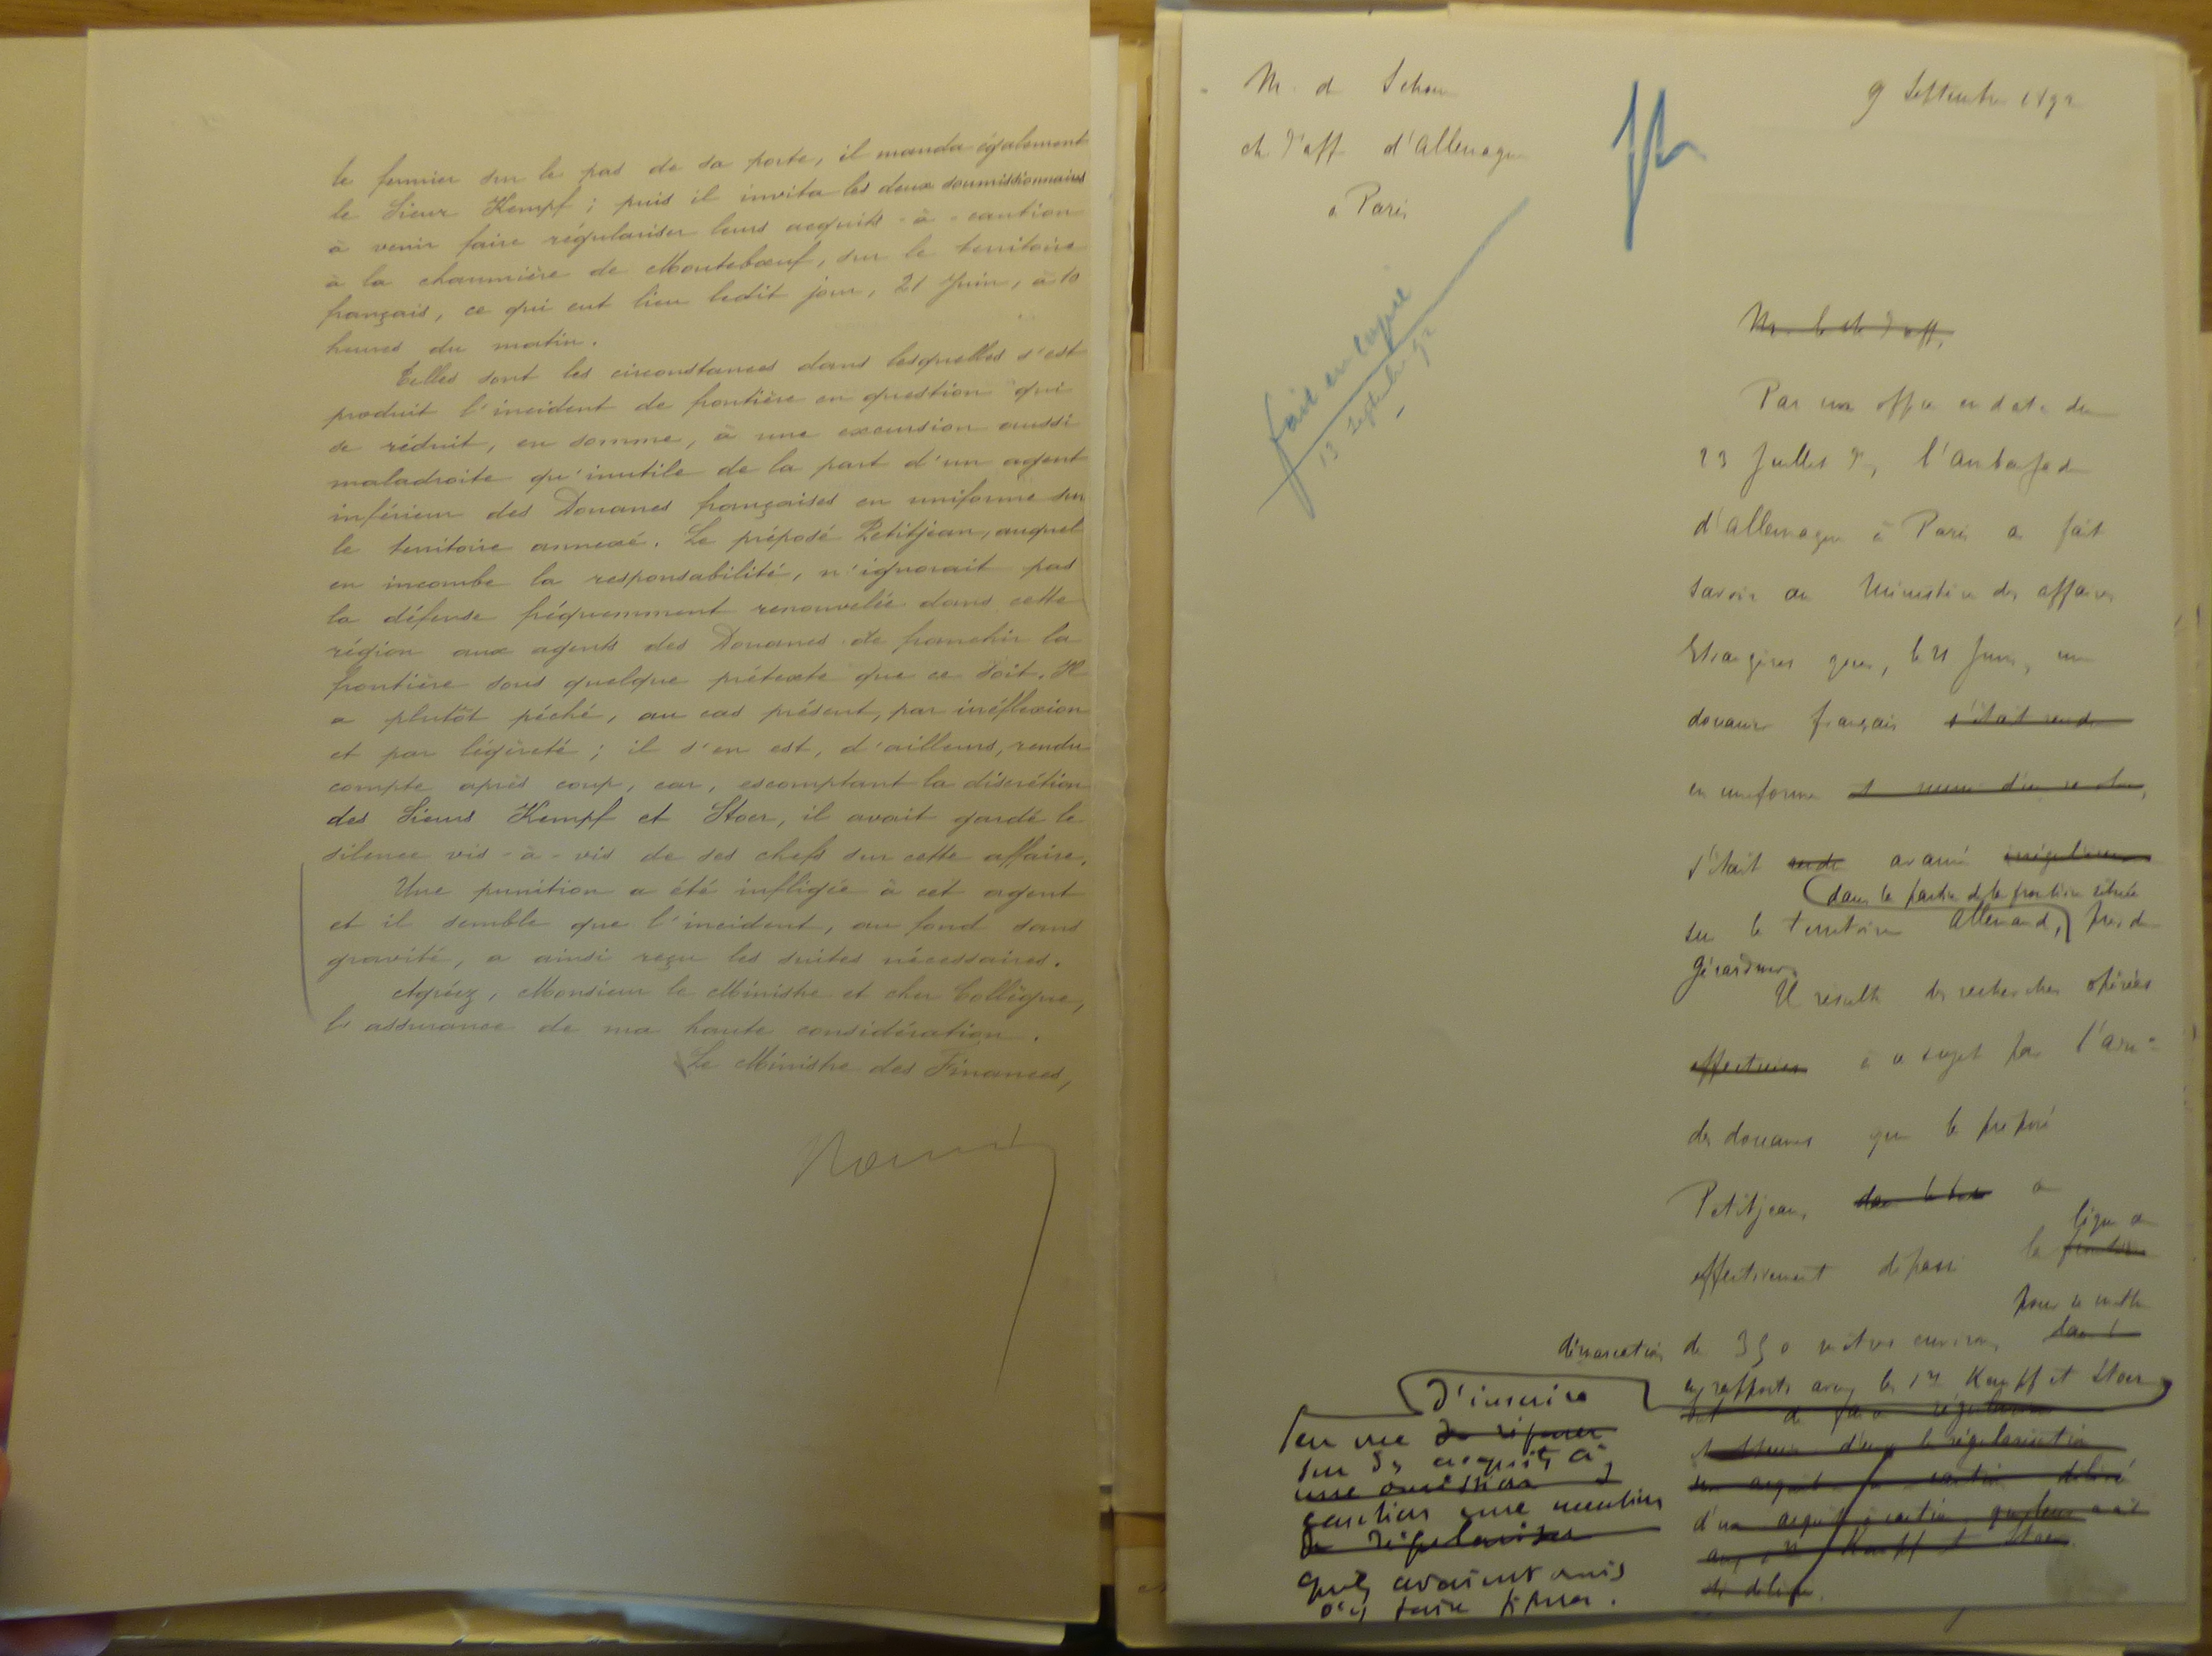 le fermier sur le pas de sa porte, il manda également
le Sieur Kempf ; puis il invita les deux soumissionnaires
à venir faire régulariser leurs acquits-à-caution
à la chaumière de Moutebœuf, sur le territoire
français, ce qui eut lieu ledit jour, 21 Juin, à 10
heures du matin.
Telles sont les circonstances dans lesquelles s'est
produit l'incident de frontière en question qui
se réduit, en somme, à une excursion aussi
maladroite qu'inutile de la part d'un agent
inférieur des Douanes françaises en uniforme sur
le territoire annexé. Le préposé Petitjean, auquel
en incombe la responsabilité, n'ignorait pas
la défense fréquemment renouvelée dans cette
région aux agents des Douanes de franchir la
frontière sous quelque prétexte que ce soit. Il
a plutôt péché, au cas présent, par irréflexion
et par légèreté ; il s'en est, d'ailleurs, rendu
compte après coup, car, escomptant la discrétion
des Sieurs Kempf et Stoer, il avait gardé le
silence vis-à-vis de ses chefs sur cette affaire.
Une punition a été infligée à cet agent
et il semble que l'incident, au fond sans
gravité, a ainsi reçu les suites nécessaires.
Agréez, Monsieur le Ministre et cher Collègue,
l'assurance de ma haute considération.
Le Ministre des Finances,
M. de Schoen
ch d'aff d'Allemagne
à Paris
9 Septembre 1892
fait en copie
13 septembre 92
M. le ch d'aff,
Par un office en date du
23 Juillet dr, l'ambassade
d'Allemagne à Paris a fait
savoir au Ministère des affaires
Etrangères que, le 21 Juin, un
douanier français s'était rendu
en uniforme
s'était rendu avancé irrégulièrement
dans la partie de la frontière située
sur le territoire allemand, près de
Gérardmer.
Il résulte des recherches opérées
effectuées à ce sujet par l'adm.
des douanes que le préposé
Petitjean, a
effectivement dépassé la frontière
ligne de
démarcation de 350 mètres environ
pour se mettre
en rapports avec les Srs Kempff et Stoer
en vue de réparer
d'inscrire
sur des acquits à
une omission
caution une mention
de régulariser
qu'ils avaient omis
d'y faire
d'un acquit à caution
aux Srs Kempff et Stoer